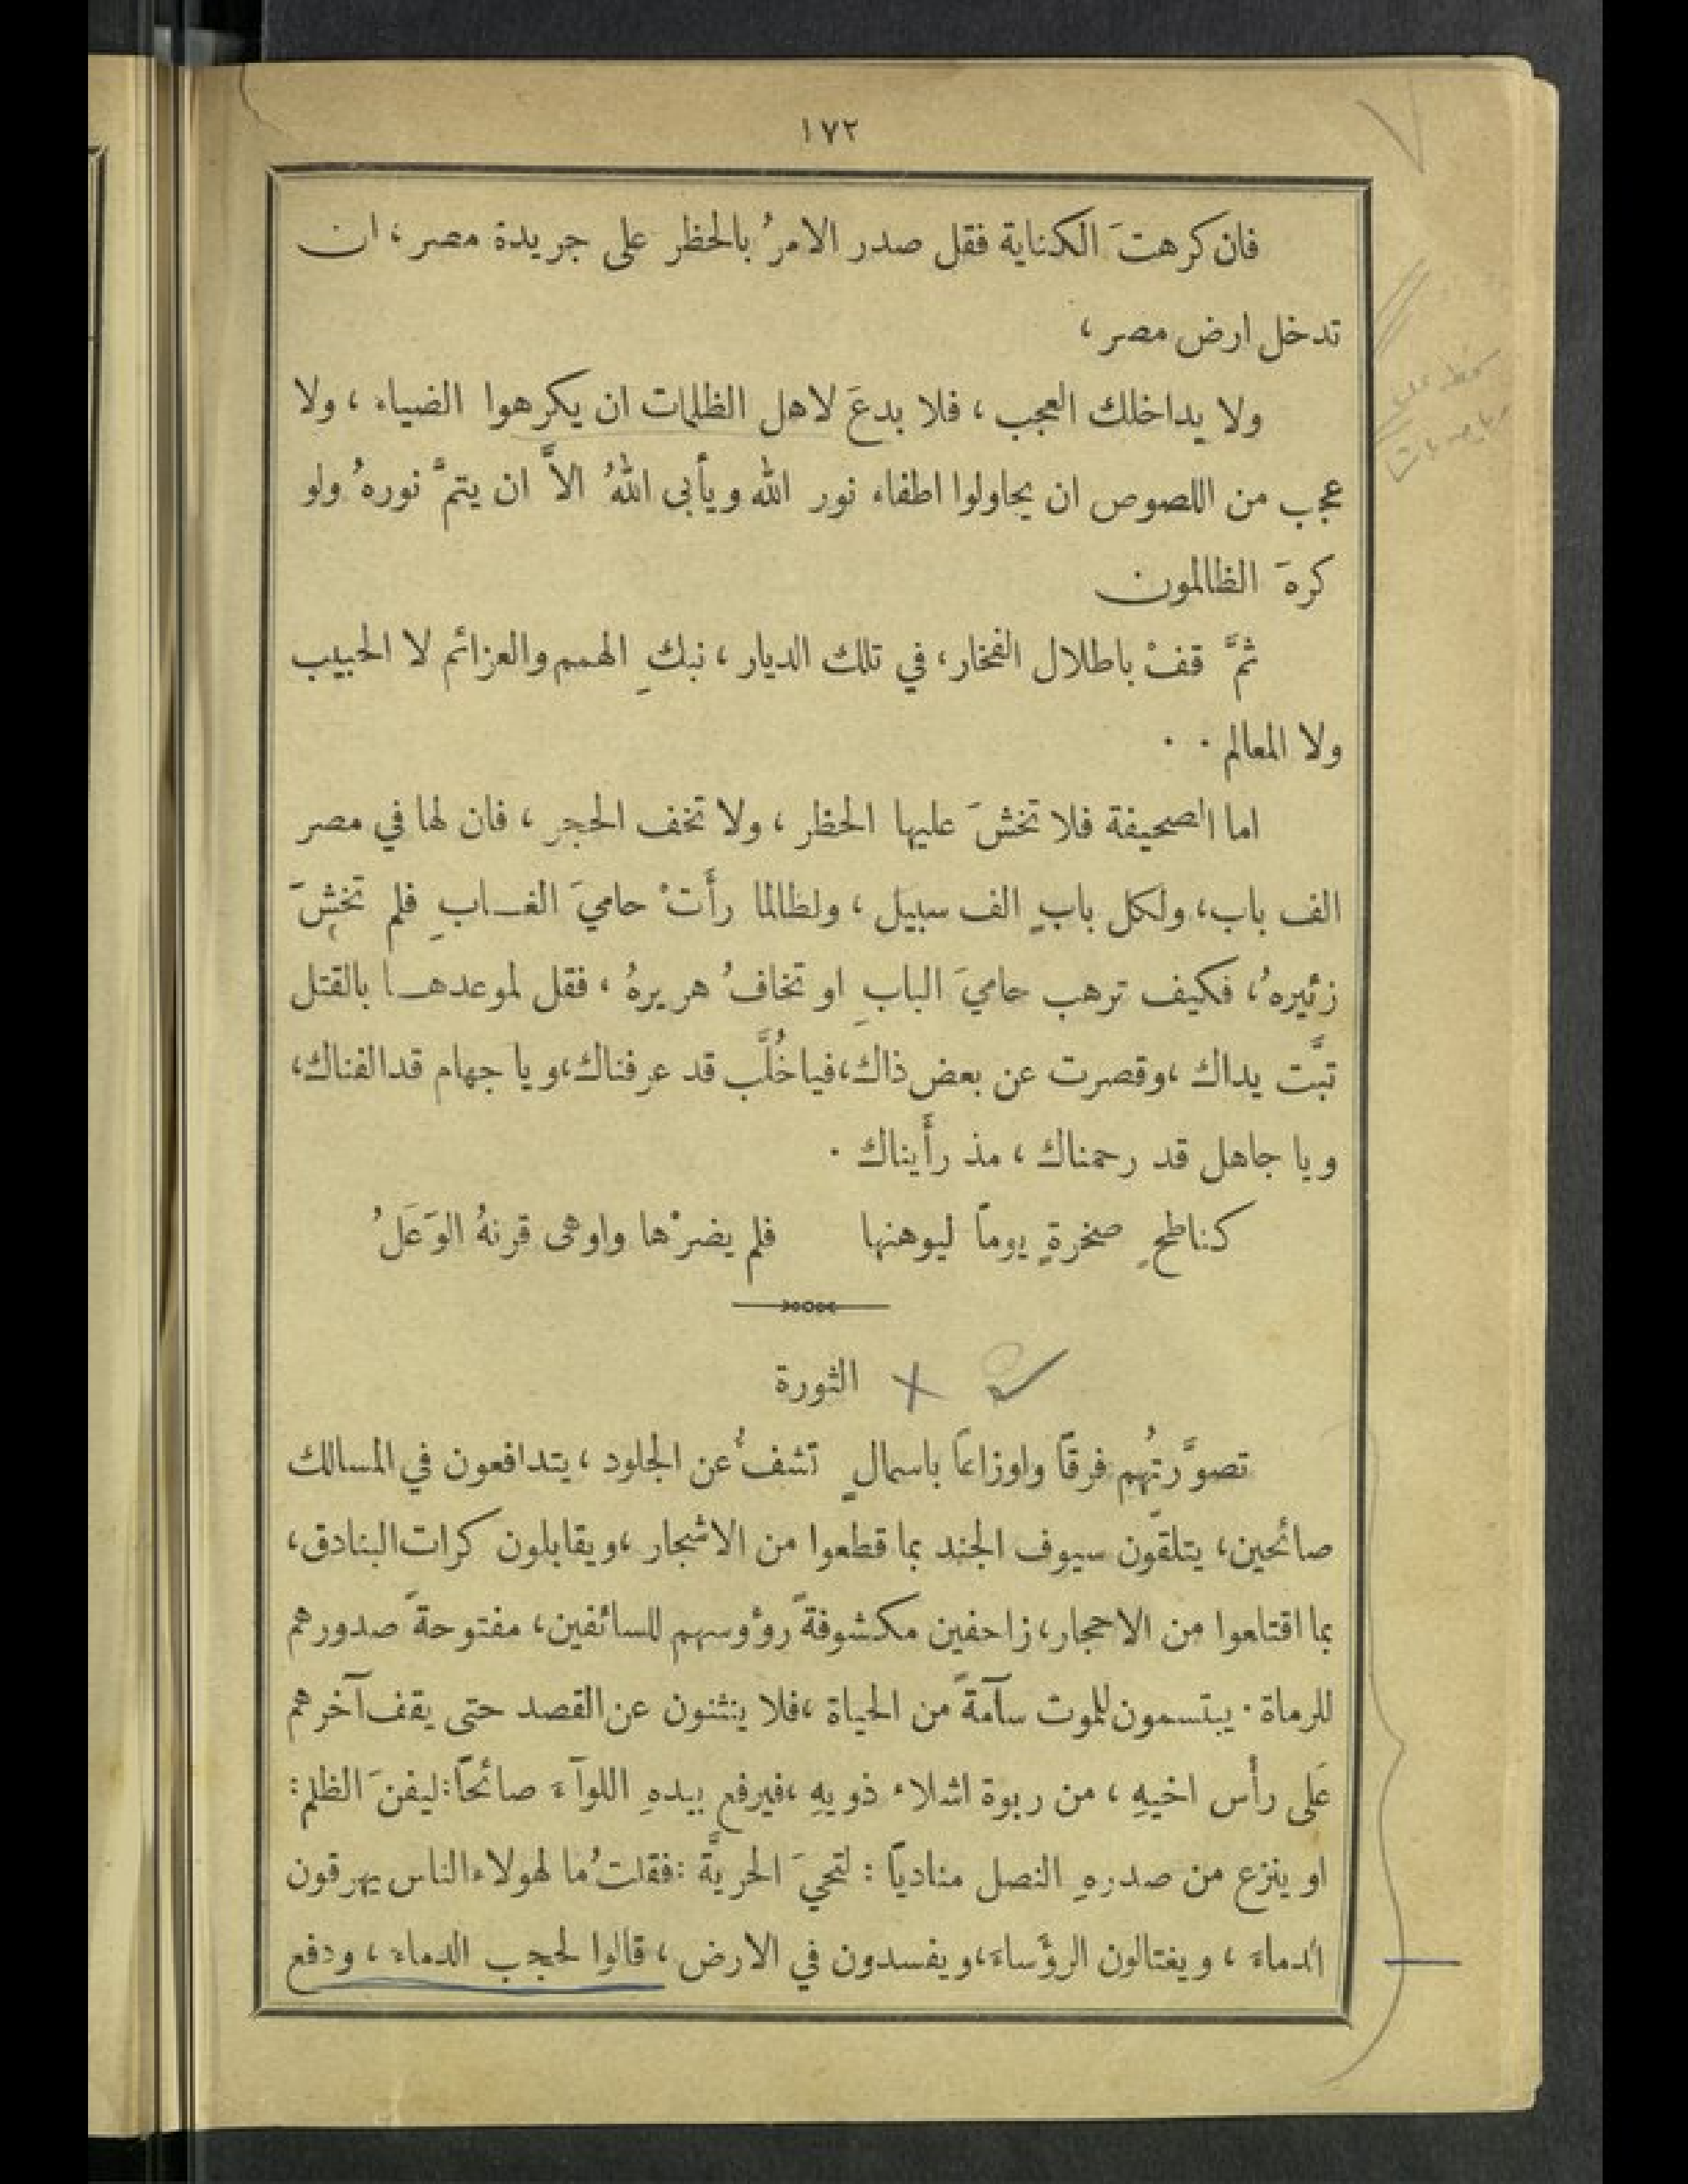 ١٧٢
فان كرهتَ الكناية فقل صدر الامرُ بالحظر على جريدة مصر ، ان
تدخل ارض مصر ،
ولا يداخلك العجب ، فلا بدعَ لاهل الظلمات ان يكرهوا الضياء ، ولا
عجب من اللصوص ان يحاولوا اطفاء نور الله ويأبى اللهُ الاَّ ان يتمَّ نورهُ ولو
كرهَ الظالمون
ثمَّ قفْ باطلال الفخار ، في تلك الديار ، نبكِ الهمم والعزائم لا الحبيب
ولا المعالم · ·
اما الصحيفة فلا تخشَ عليها الحظر ، ولا تخف الحجر ، فان لها في مصر
الف باب ، ولكل بابٍ الف سبيل ، ولطالما رأَتْ حاميَ الغــابِ فلم تخشَ
زئيرهُ ، فكيف ترهب حاميَ البابِ او تخافُ هريرهُ ، فقل لموعدهــا بالقتل
تبَّت يداك ، وقصرت عن بعض ذاك ، فيا خُلَّب قد عرفناك ، ويا جهام قد الفناك ،
ويا جاهل قد رحمناك ، مذ رأَيناك ·
كناطحٍ صخرةٍ يوماً ليوهنها فلم يضرْها واوهى قرنهُ الوَعَلُ
الثورة
تصوَّرتُهم فرقاً واوزاعاً باسمالٍ تشفُّ عن الجلود ، يتدافعون في المسالك
صائحين ، يتلقَّون سيوف الجند بما قطعوا من الاشجار ، ويقابلون كرات البنادق ،
بما اقتلعوا من الاحجار ، زاحفين مكشوفةً رؤوسهم للسائفين ، مفتوحةً صدورهم
للرماة · يبتسمون للموت سآمةً من الحياة ، فلا ينثنون عن القصد حتى يقف آخرهم
عَلى رأْس اخيهِ ، من ربوة اشلاء ذويهِ ، فيرفع بيدهِ اللوآءَ صائحاً : ليفنَ الظلم :
او ينزع من صدرهِ النصل منادياً : لتحيَ الحريَّة : فقلتُ ما لهولاء الناس يهرقون
الدماءَ ، ويغتالون الرؤَساءَ ، ويفسدون في الارض ، قالوا لحجب الدماء ، ودفع